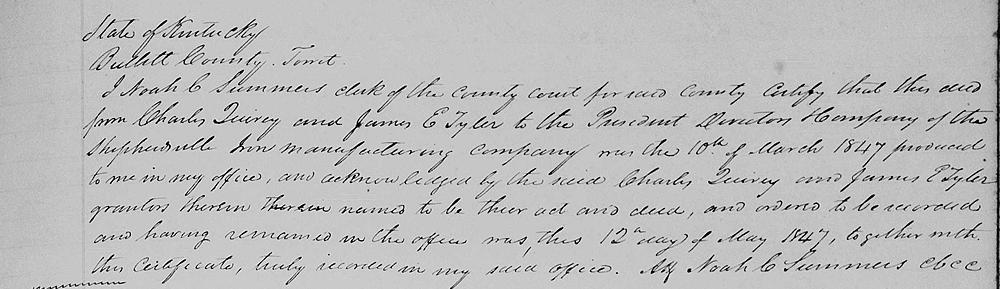 State of Kentucky
Bullitt County. Towit.
I Noah C Summers clerk of the county court for said county certify that this deed
from Charles Quirey and James E Tyler to the President Directors & Company of the
Shepherdsville Iron manufacturing company was the 10th of March 1847 produced
to me in my office, and acknowledged by the said Charles Quirey and James E Tyler
grantors therein therein named to be their act and deed, and ordered to be recorded
and having remained in the office was, this 12th day of May 1847, together with
this certificate, truly recorded in my said office. Att Noah C Summers cbcc